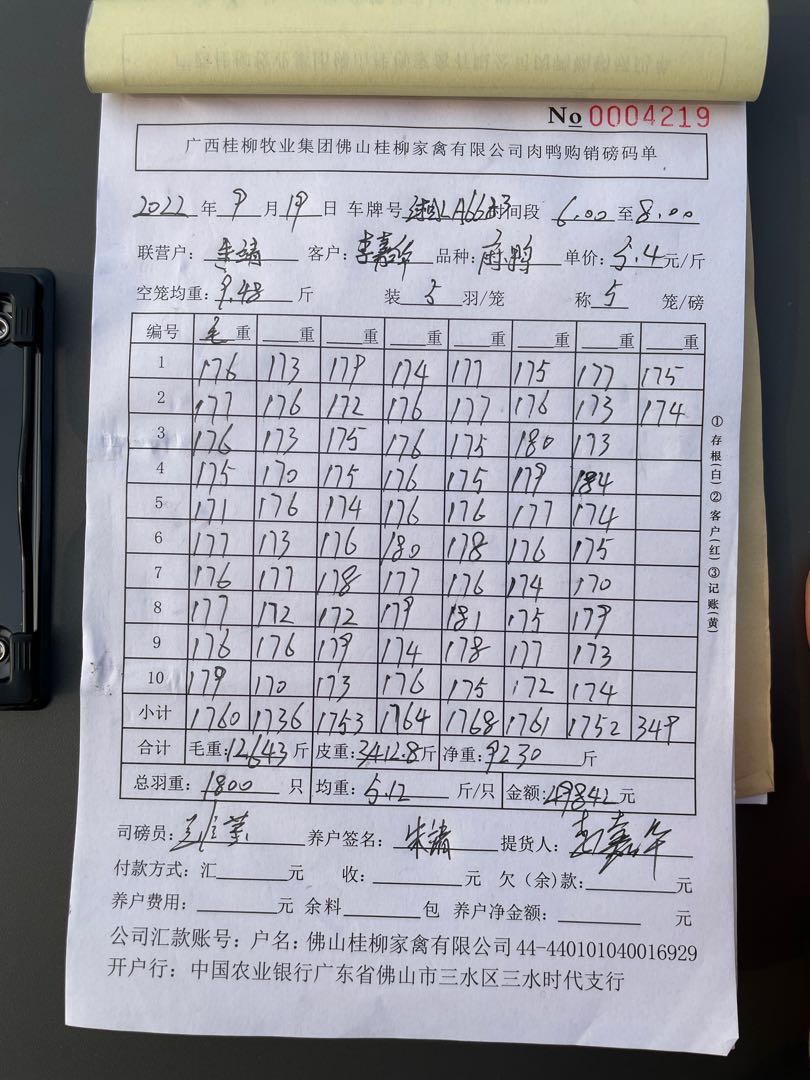 No 0004219
广西桂柳牧业集团佛山桂柳家禽有限公司肉鸭购销磅码单
2022 年 9 月 19 日 车牌号 湘LA6633 时间段 6.00 至 8.00
联营户: 朱靖 客户: 李嘉华 品种: 麻鸭 单价: 5.4 元/斤
空笼均重: 9.48 斤 装 5 羽/笼 称 5 笼/磅
编号 毛重 重 重 重 重 重 重 重
1 176 173 179 174 177 175 177 175
2 177 176 172 176 177 176 173 174
3 176 173 175 176 175 180 173
4 175 170 175 176 175 179 184
5 171 176 174 176 176 177 174
6 177 173 176 180 178 176 175
7 176 177 178 177 176 174 170
8 177 172 172 179 181 175 179
9 176 176 179 174 178 177 173
10 179 170 173 176 175 172 174
小计 1760 1736 1753 1764 1768 1761 1752 349
合计 毛重: 12643 斤 皮重: 3412.8 斤 净重: 9230 斤
总羽重: 1800 只 均重: 5.12 斤/只 金额: 49842 元
司磅员: 养户签名: 朱靖 提货人: 李嘉华
付款方式: 汇 元 收: 元 欠(余)款: 元
养户费用: 元 余料 包 养户净金额: 元
公司汇款账号: 户名: 佛山桂柳家禽有限公司 44-440101040016929
开户行: 中国农业银行广东省佛山市三水区三水时代支行
①存根(白)②客户(红)③记账(黄)